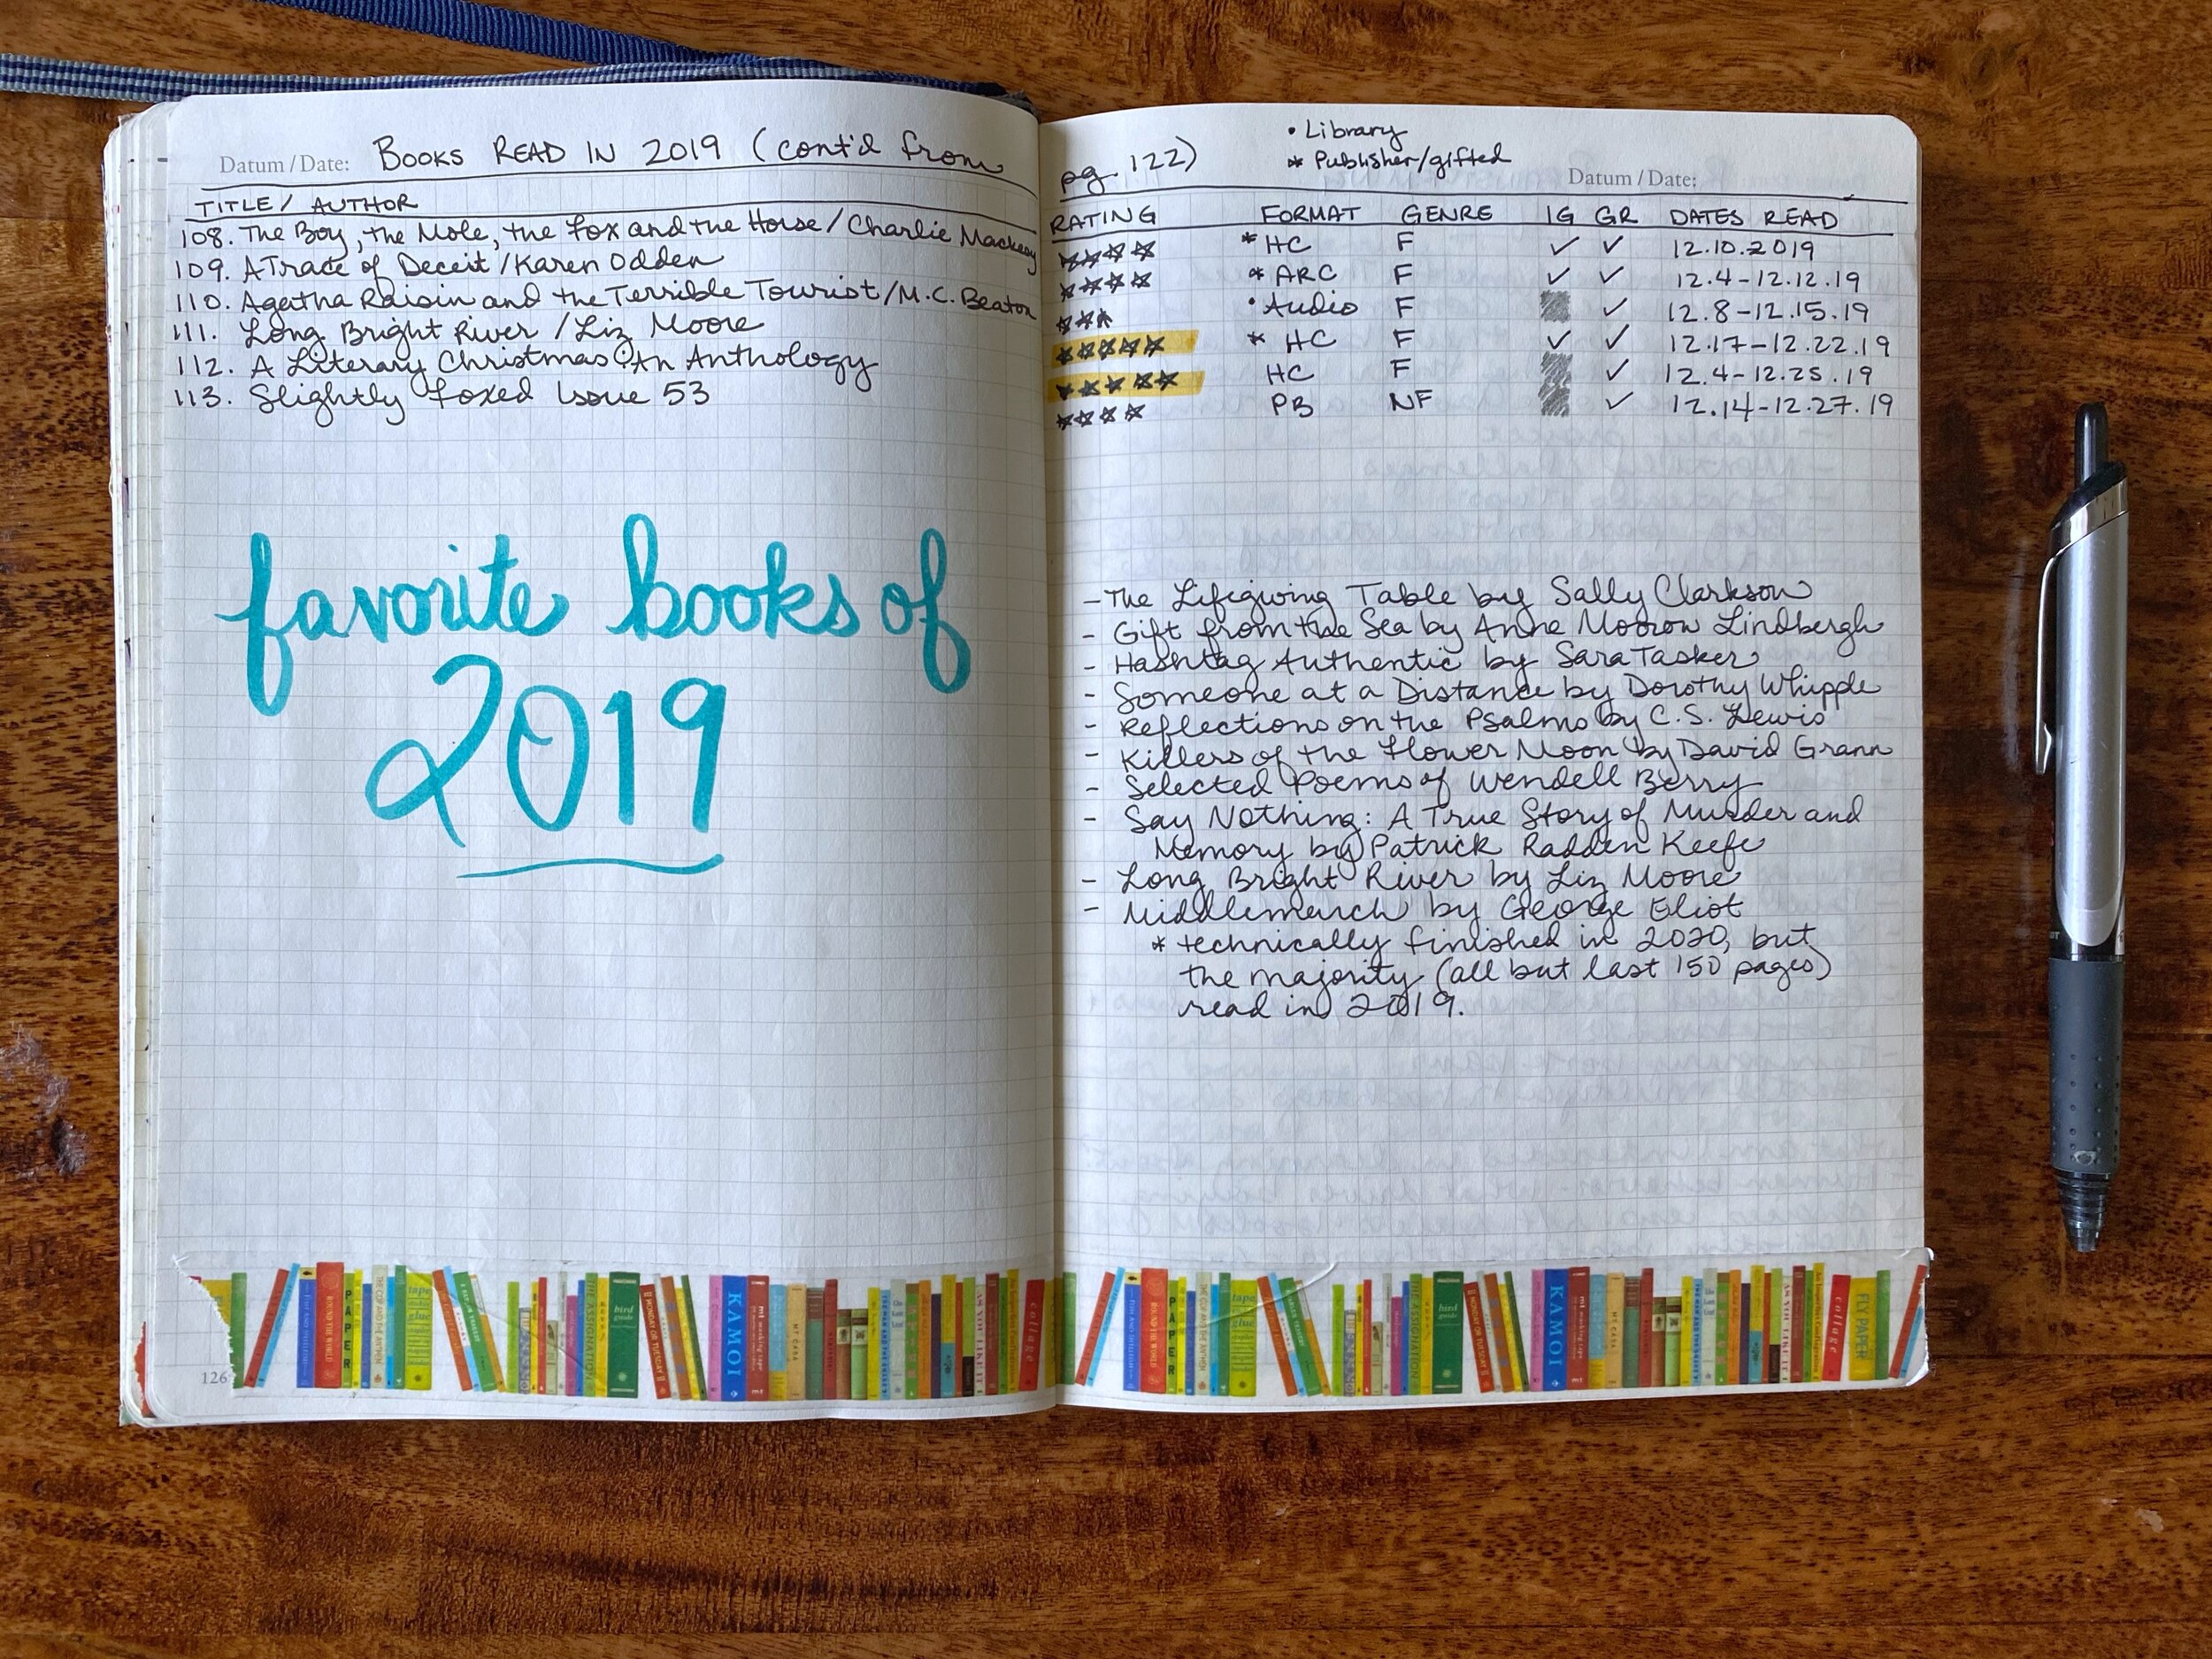 Datum / Date: BOOKS READ IN 2019 (cont'd from
TITLE / AUTHOR
108. The Boy, the Mole, the Fox and the Horse / Charlie Mackesy
109. A Trace of Deceit / Karen Odden
110. Agatha Raisin and the Terrible Tourist / M.C. Beaton
111. Long Bright River / Liz Moore
112. A Literary Christmas: An Anthology
113. Slightly Foxed Issue 53
favorite books of
2019
126
pg. 122)
• Library
* Publisher/gifted
Datum / Date:
RATING FORMAT GENRE IG GR DATES READ
☆☆☆☆ * HC F ✓ ✓ 12.10.2019
☆☆☆☆ * ARC F ✓ ✓ 12.4-12.12.19
☆☆☆ • Audio F ✓ 12.8-12.15.19
☆☆☆☆☆ * HC F ✓ ✓ 12.17-12.22.19
☆☆☆☆☆ HC F ✓ 12.4-12.25.19
☆☆☆☆ PB NF ✓ 12.14-12.27.19
- The Lifegiving Table by Sally Clarkson
- Gift from the Sea by Anne Morrow Lindbergh
- Hashtag Authentic by Sara Tasker
- Someone at a Distance by Dorothy Whipple
- Reflections on the Psalms by C.S. Lewis
- Killers of the Flower Moon by David Grann
- Selected Poems of Wendell Berry
- Say Nothing: A True Story of Murder and
Memory by Patrick Radden Keefe
- Long Bright River by Liz Moore
- Middlemarch by George Eliot
* technically finished in 2020, but
the majority (all but last 150 pages)
read in 2019.
ROUND THE WORLD
PAPER
tape
glue
THE ASSIGNATION
bird guide
MONDAY OR TUESDAY
KAMOI
mt
MY CASA
AS YOU LIKE IT
collage
ROUND THE WORLD
PAPER
tape
glue
THE ASSIGNATION
bird guide
MONDAY OR TUESDAY
KAMOI
mt
MY CASA
AS YOU LIKE IT
collage
FLY PAPER